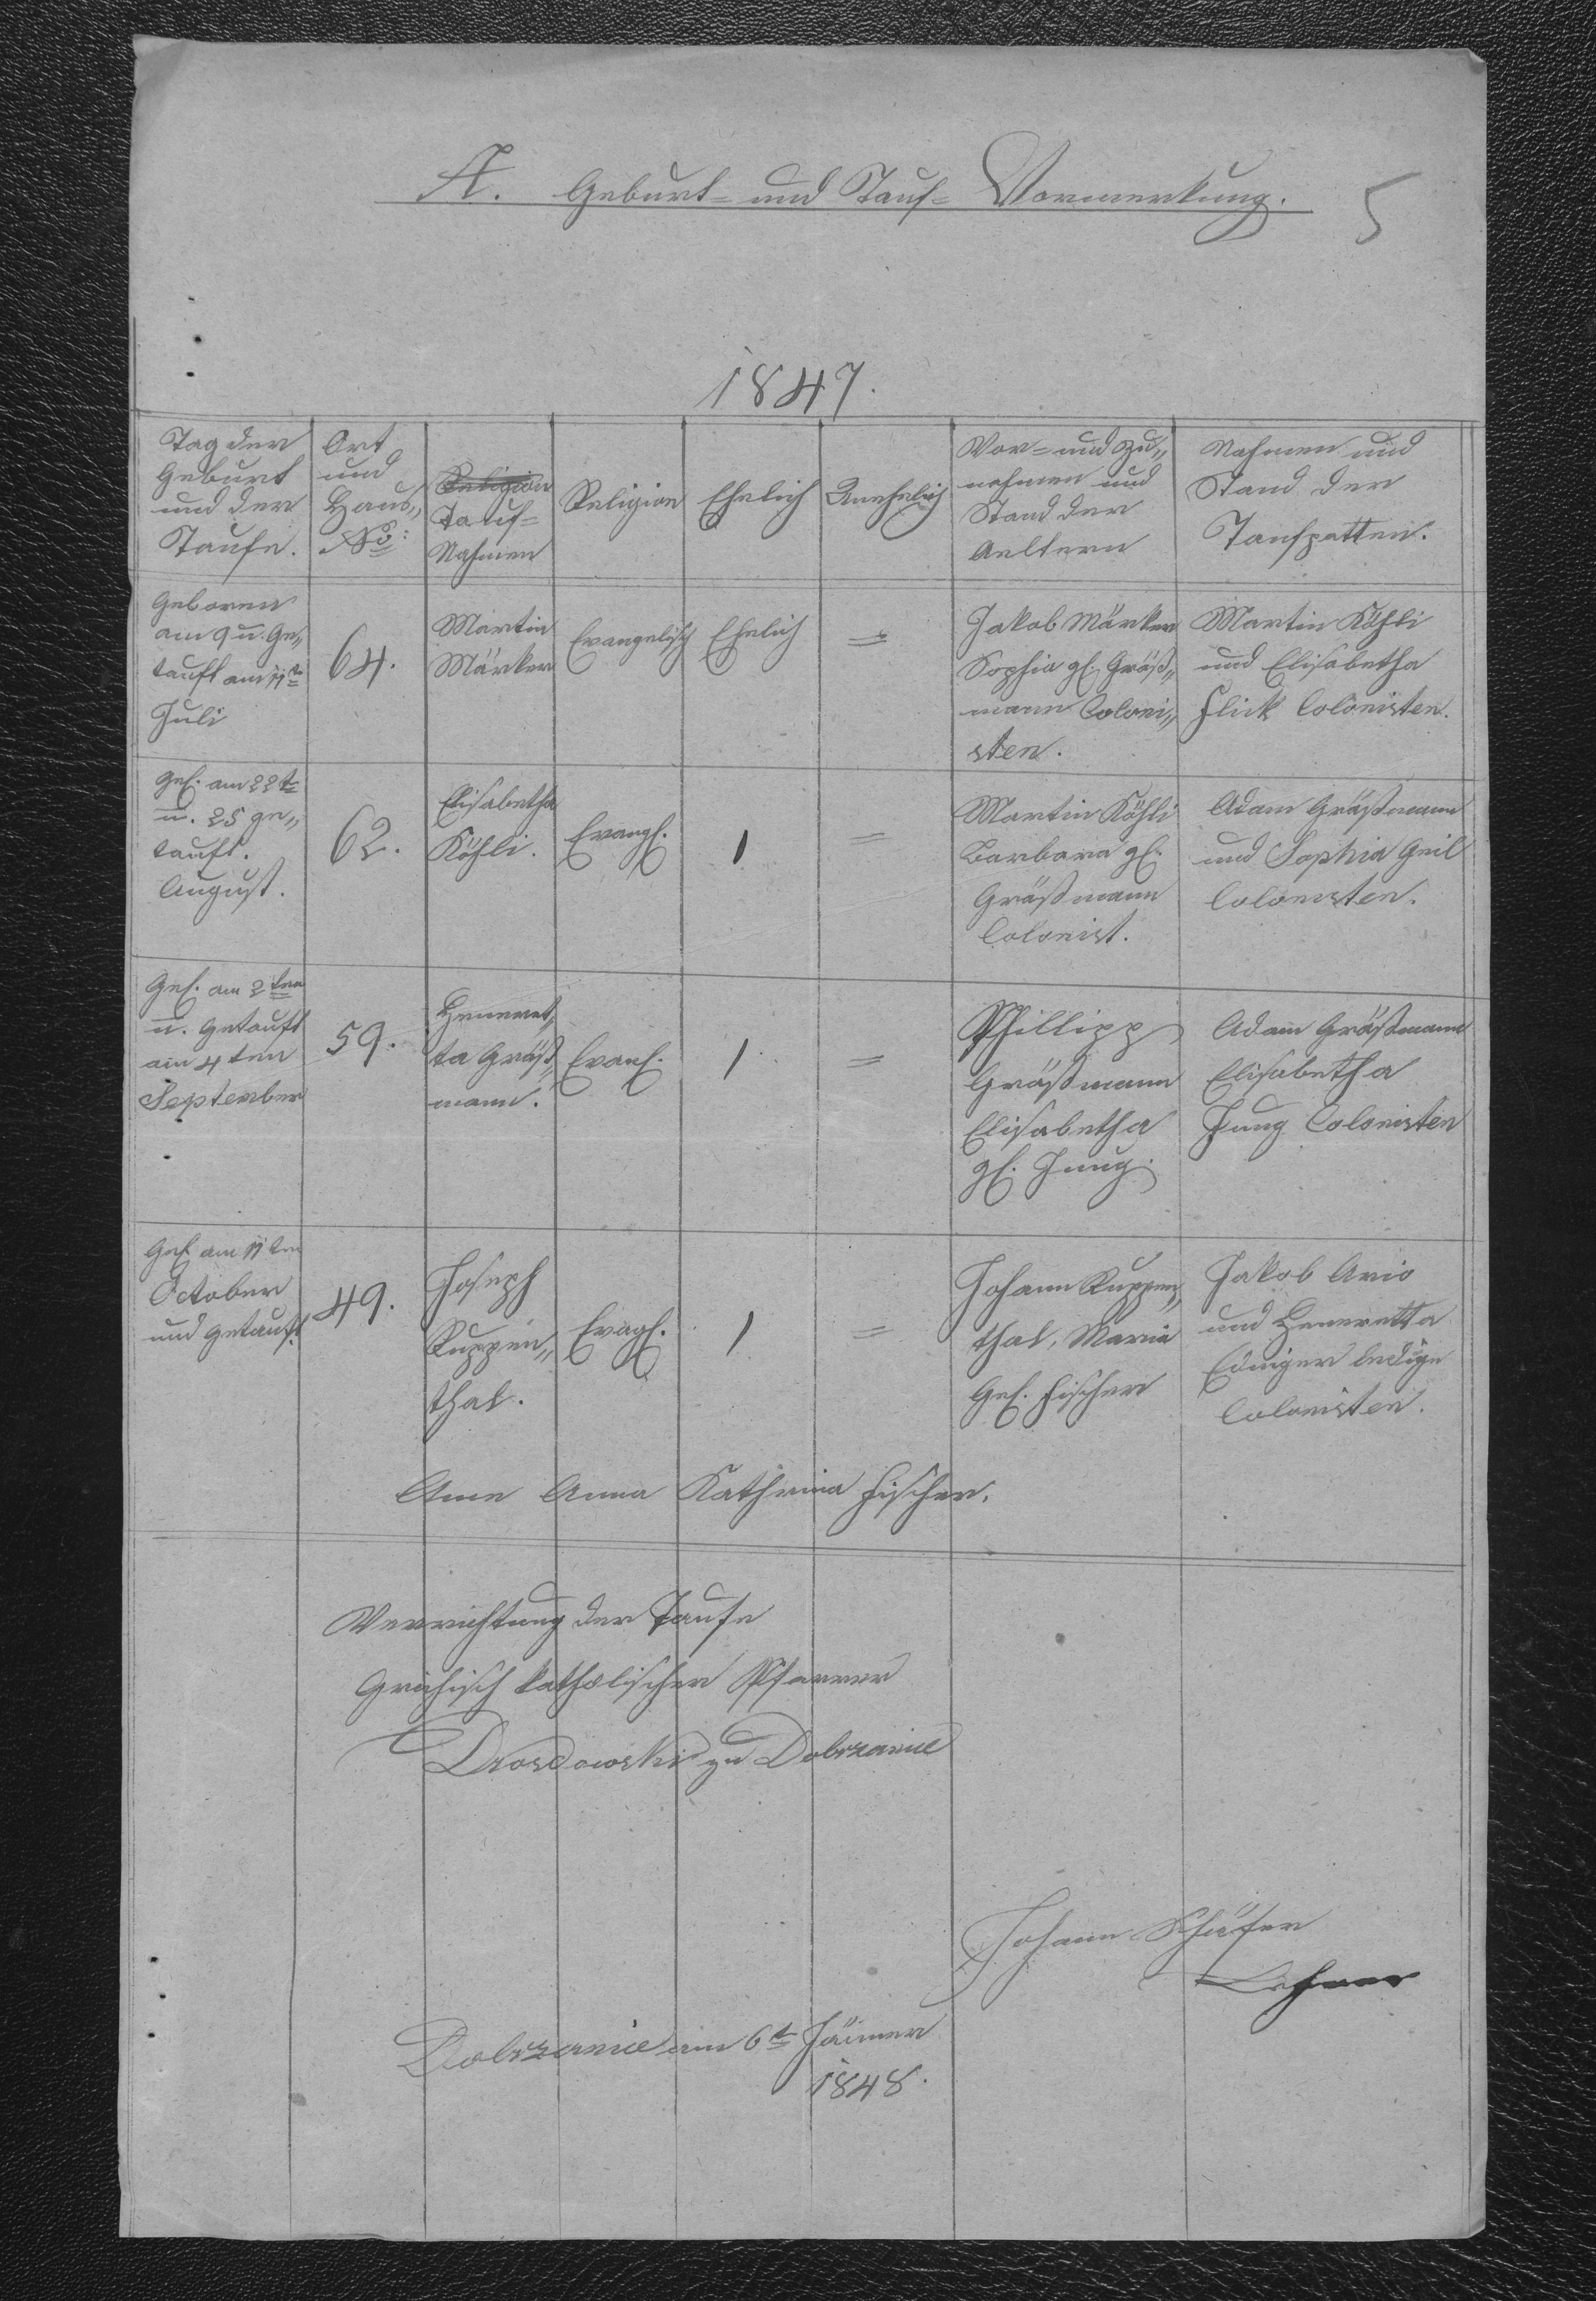 A. Geburt- und Tauf- Vormerkung.
5
1847.
Tag der
Geburt
und der
Taufe.
Ort
und
Haus„
No:
Religion
Tauf-
Nahmen
Religion
Ehelich
Unehelich
Vor- und Zu„
nahmen und
Stand der
Aeltern
Nahmen und
Stand der
Taufpatten.
Geboren
am 9 u. Ge„
tauft am 11t
Juli
64.
Martin
Märker
Evangelisch
Ehelich
=
Jakob Märker
Sophia gb. Gräß„
mann Coloni„
sten.
Martin Köhli
und Elisabetha
Flick Colonisten.
Geb. am 22t
u. 25 ge„
tauft.
August.
62.
Elisabetha
Köhli.
Evangl.
1
=
Martin Köhli
Barbara gb.
Gräßmann
Colonist.
Adam Gräßmann
und Sophia Geil
Colonisten.
Geb. am 2ten
u. Getauft
am 4ten
September
59.
Heneret„
ta Gräß„
mann.
Evanl.
1
=
Phillipp
Gräßmann
Elisabetha
gb. Jung.
Adam Gräßmann
Elisabetha
Jung Colonisten
Geb. am 11ten
October
und getauft
49.
Joseph
Ruppen„
thal.
Evagl.
1
=
Johann Ruppen„
thal, Maria
Geb. Fischer
Jakob Ario
und Heneretta
Ediger ledige
Colonisten.
Ame Anna Kathrina Fischer.
Verrichtung der Taufe
Grichisch katholischer Pfarrer
Drosdowski zu Dobrzanice
Johann Schäfer
Lehrer
Dobrzanice am 6t Jänner
1848.